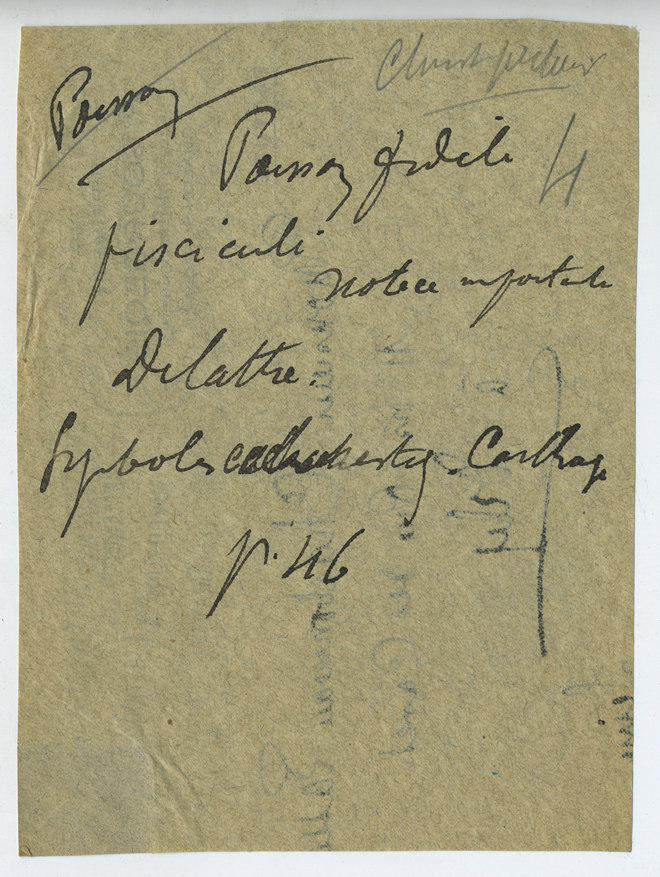 Poisson
Christ pêcheur
4
Poisson fidèle
pisciculi
notice importante
Delattre.
Symboles eucharistiq. Carthage
p. 46